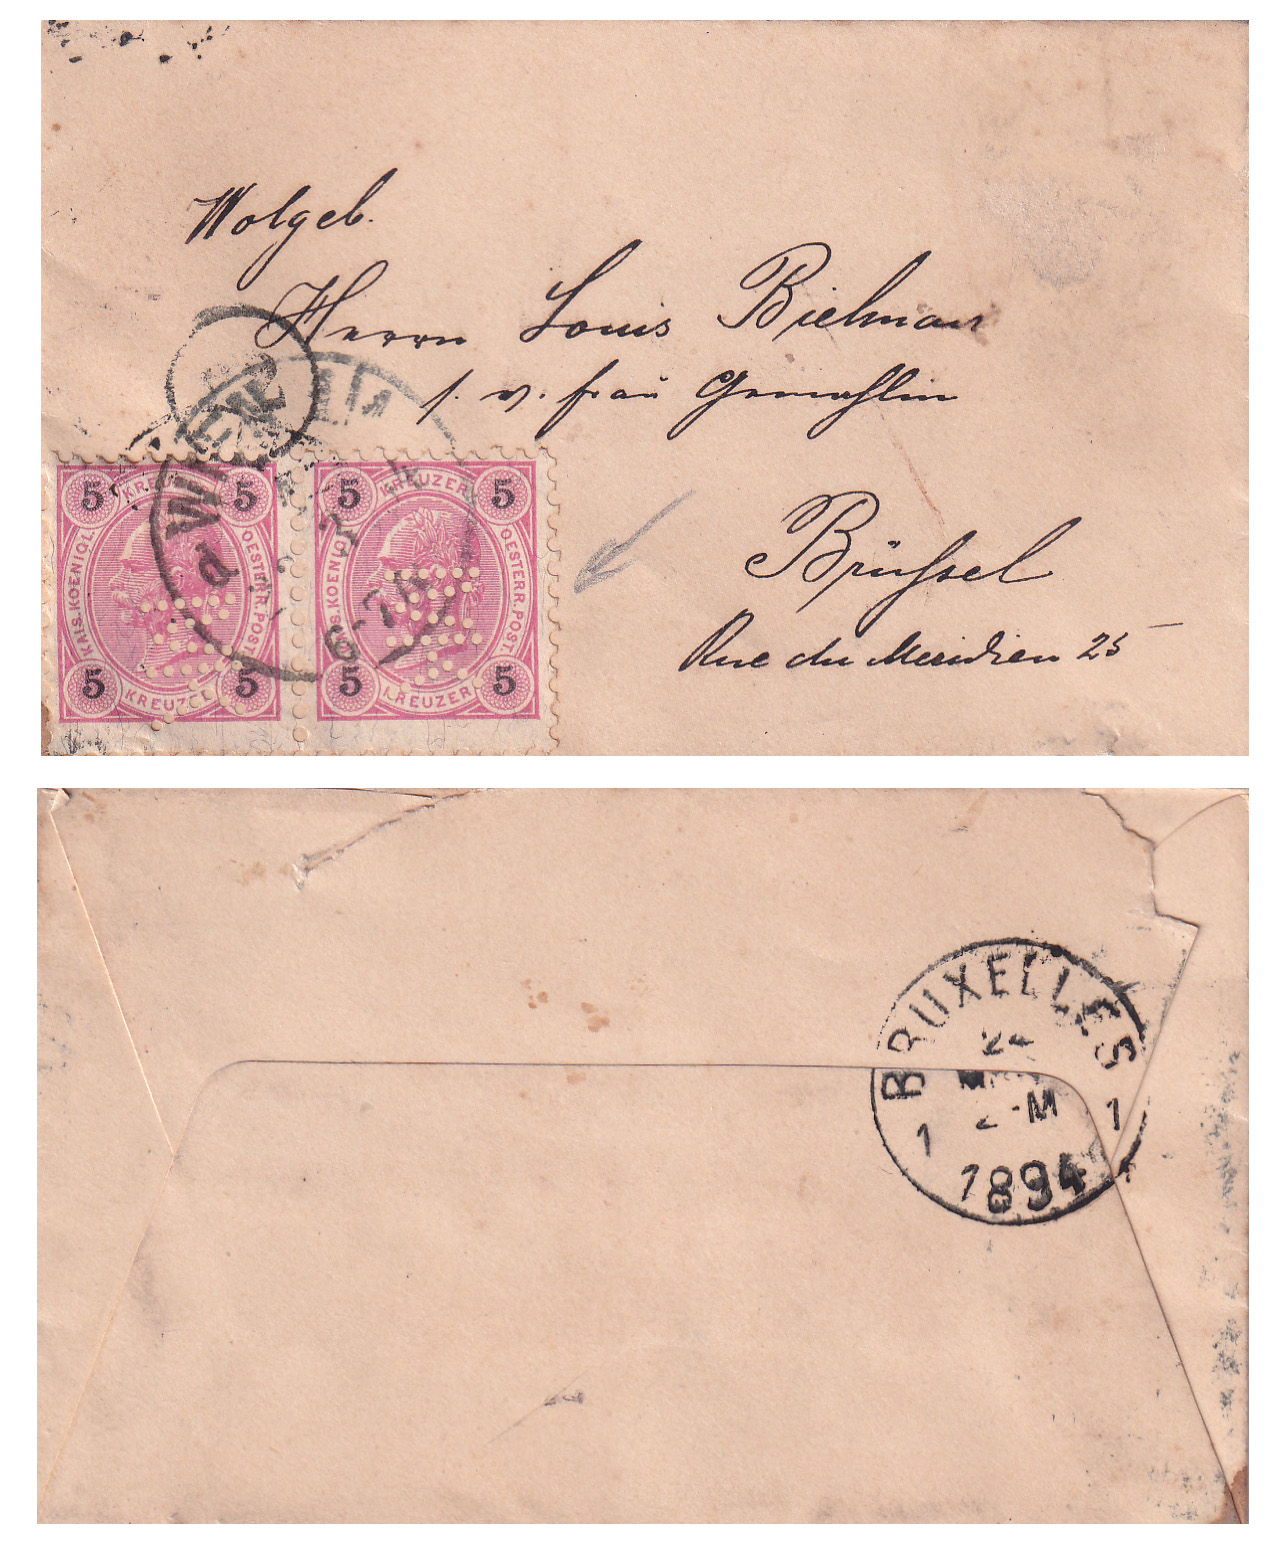 Wolgeb.
Herrn Louis Bielman
s. v. frau Gemahlin
Brüssel
Rue du Meridien 25
5 KREUZER 5
KAIS. KOENIGL. OESTERR. POST.
5 KREUZER 5
5 KREUZER 5
KAIS. KOENIGL. OESTERR. POST.
5 KREUZER 5
WIEN
d
6-7A
BRUXELLES
24
2-M
1 1
1894